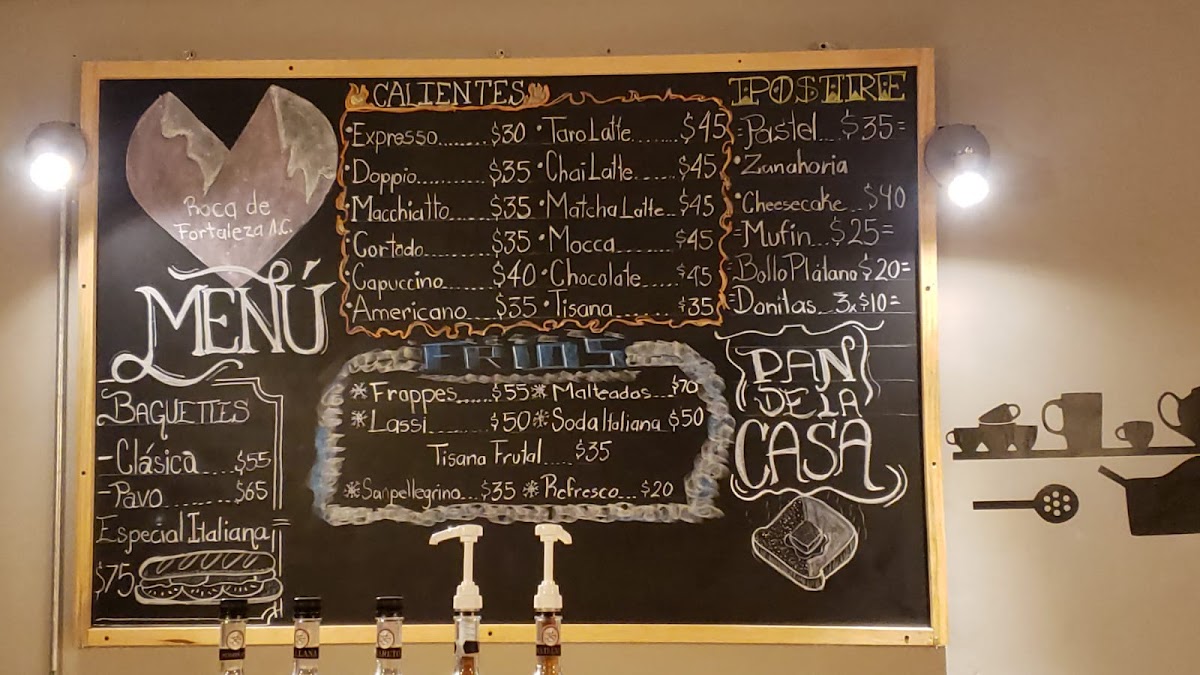 Roca de
Fortaleza A.C.
MENÚ
BAGUETTES
-Clásica....$55
-Pavo.......$65
Especial Italiana
$75
CALIENTES
•Expresso........$30
•Doppio..........$35
•Macchiatto......$35
•Cortado.........$35
•Capuccino.......$40
•Americano.......$35
•Taro Latte.......$45
•Chai Latte.......$45
•Matcha Latte...$45
•Mocca........$45
•Chocolate.....$45
•Tisana........$35
FRIOS
*Frappes......$55 *Malteadas...$70
*Lassi........$50 *Soda Italiana $50
Tisana Frutal.....$35
*Sanpellegrino...$35 *Refresco...$20
POSTRE
=Pastel...$35=
•Zanahoria
•Cheesecake..$40
=Mufin...$25=
=Bollo Plátano $20=
=Donitas...3x$10=
PAN
DE LA
CASA
LLANA
RETO